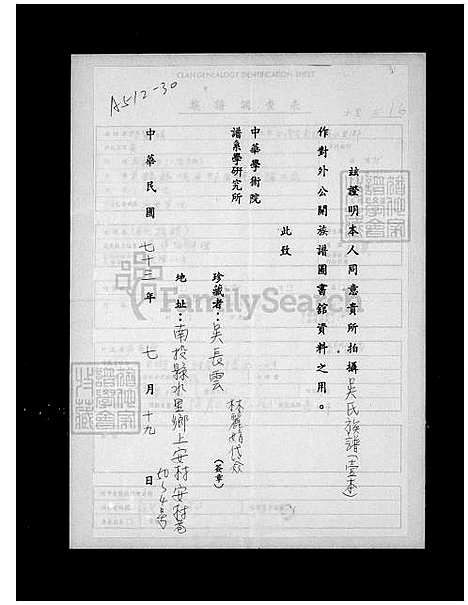 A512-30
CLAN GENEALOGY IDENTIFICATION SHEET
茲證明本人同意貴所拍攝吳氏族譜(壹本)
作對外公開族譜圖書館資料之用。
此致
中華學術院
譜系學研究所
珍藏者：吳長雲
(簽章)
地址：南投縣水里鄉上安村安村巷
50之4号
中華民國七十三年七月十九日
FamilySearch